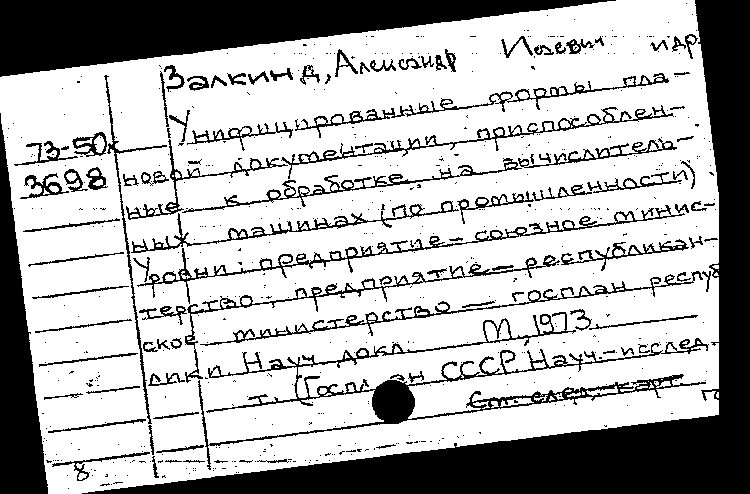 Залкинд, Александр Иоевич и др.
Унифицированные формы пла-
73-50к
новой документации, приспособлен-
3698
ные к обработке на вычислитель-
ных машинах (по промышленности)
Уровни: предприятие - союзное минис-
терство; предприятие - республикан-
ское министерство - госплан респуб
лики. Науч. докл. М., 1973.
т. (Госплан СССР. Науч.-исслед.
См. след. карт.
8